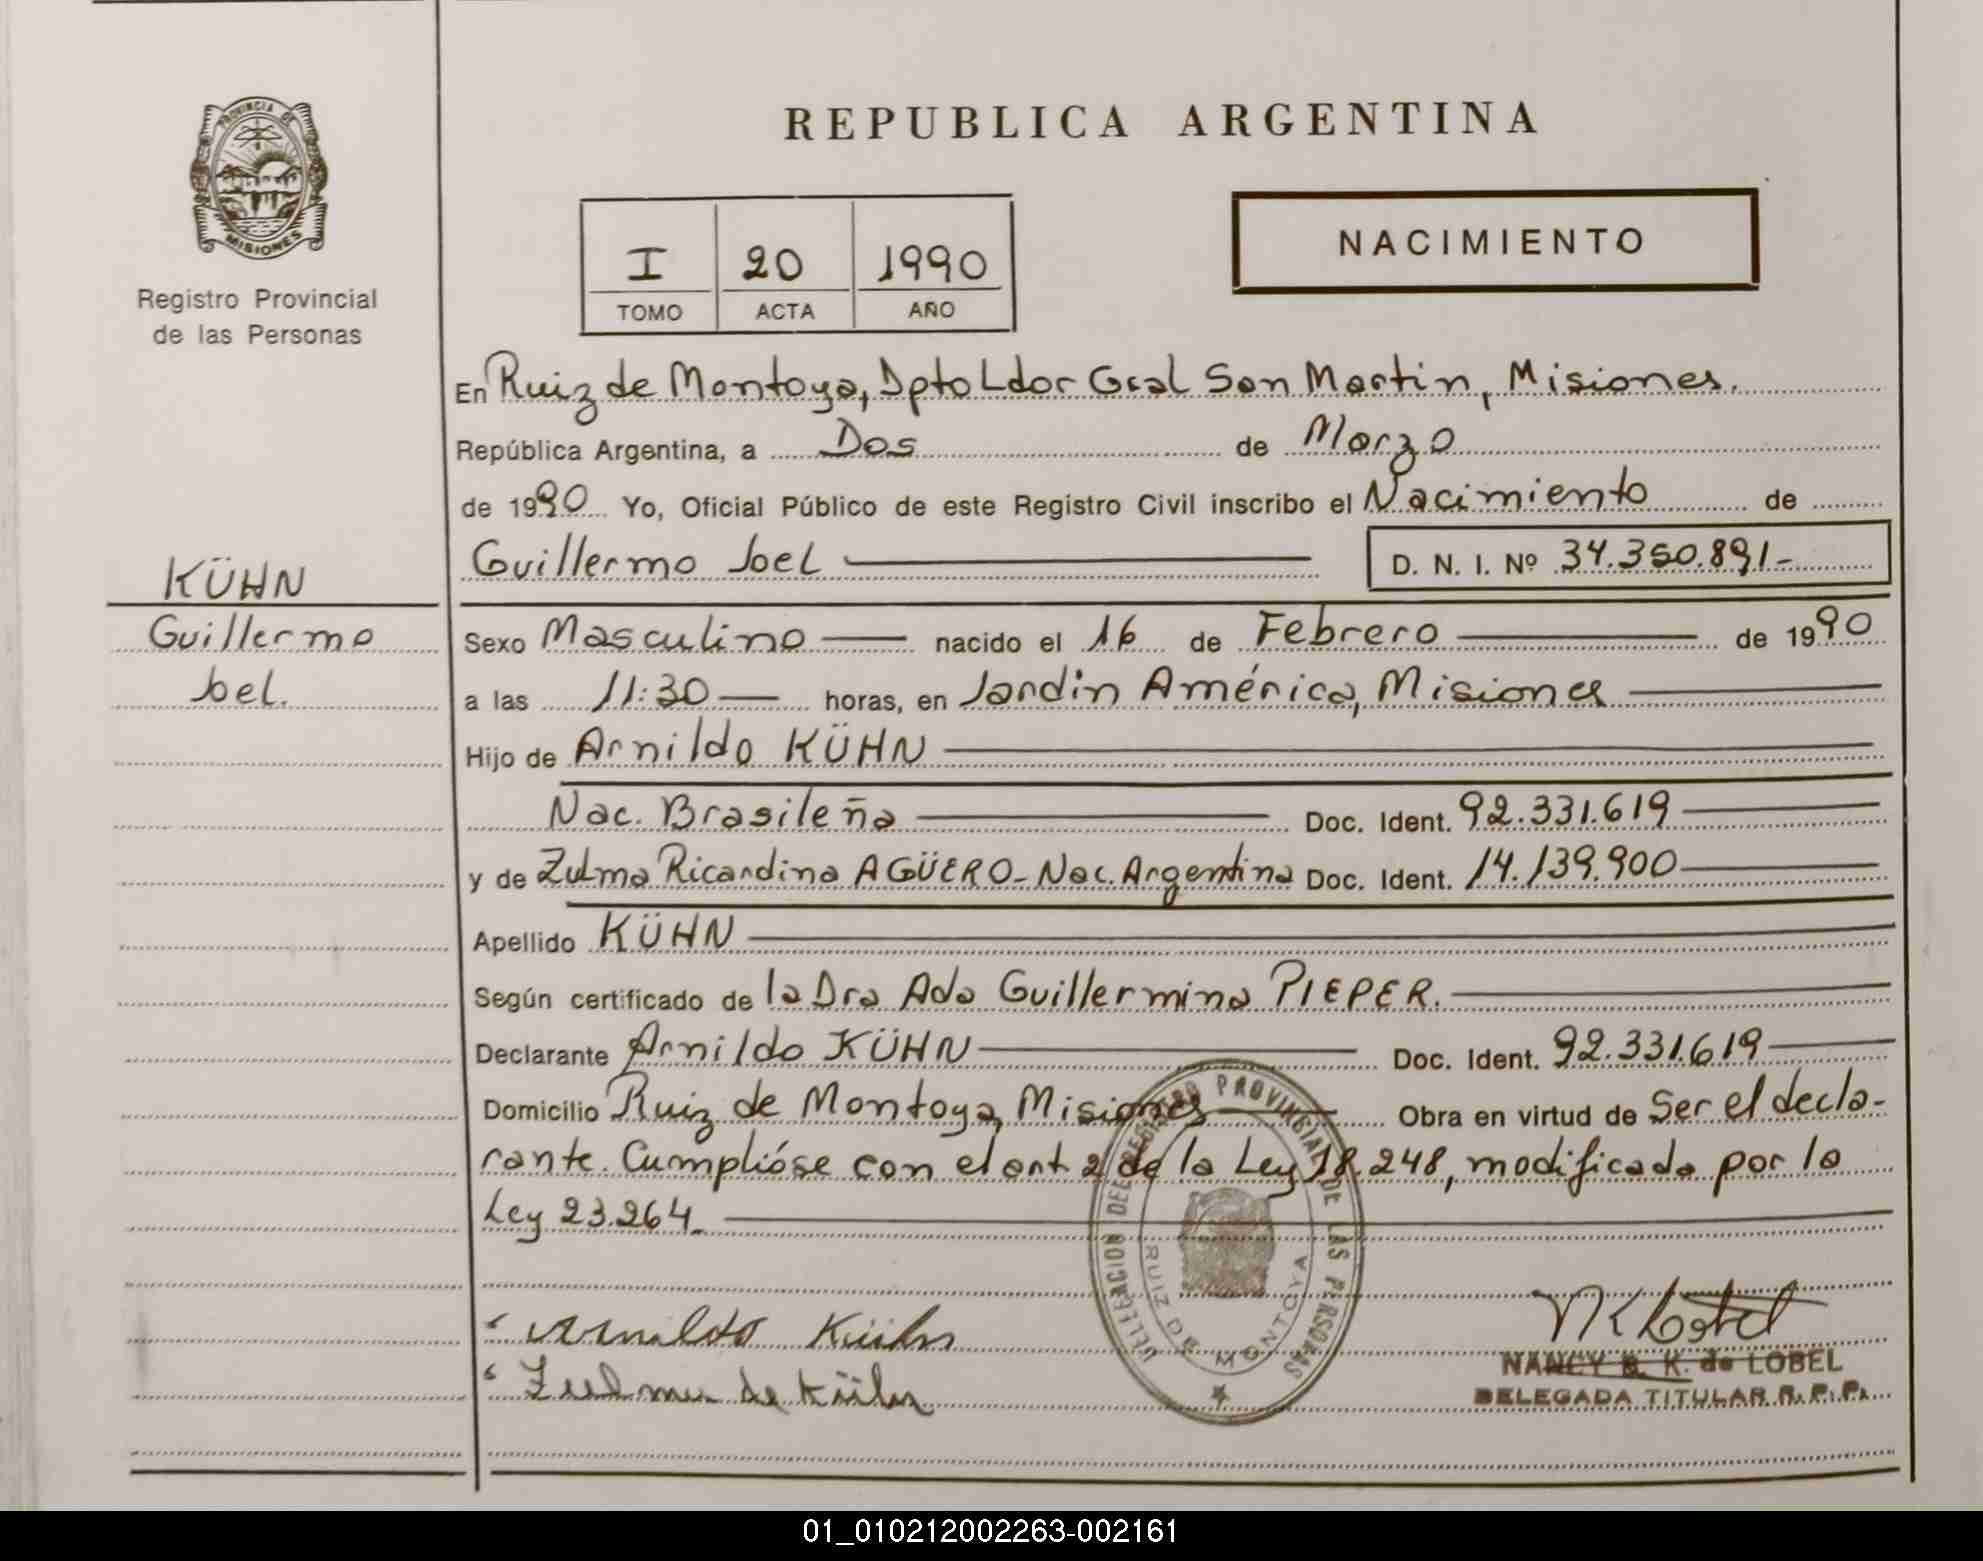 REPUBLICA ARGENTINA
PROVINCIA DE
MISIONES
Registro Provincial
de las Personas
I 20 1990
TOMO ACTA AÑO
NACIMIENTO
En Ruiz de Montoya, Dpto Ldor Gral San Martin, Misiones.
República Argentina, a Dos de Marzo
de 1990 Yo, Oficial Público de este Registro Civil inscribo el Nacimiento de
Guillermo Joel D. N. I. Nº 34.350.891-
KÜHN
Guillermo
Joel.
Sexo Masculino nacido el 16 de Febrero de 1990
a las 11:30 horas, en Jardin América, Misiones
Hijo de Arnildo KÜHN
Nac. Brasileña Doc. Ident. 92.331.619
y de Zulma Ricardina AGÜERO- Nac. Argentina Doc. Ident. 14.139.900
Apellido KÜHN
Según certificado de la Dra Ada Guillermina PIEPER.
Declarante Arnildo KÜHN Doc. Ident. 92.331.619
Domicilio Ruiz de Montoya, Misiones Obra en virtud de Ser el decla-
rante. Cumplióse con el art 2 de la Ley 18.248, modificada por la
Ley 23.264.
DELEGACION DEL REGISTRO PROVINCIAL DE LAS PERSONAS
RUIZ DE MONTOYA
Arnildo Kühn
Zulma de Kühn
NANCY B. K. de LOBEL
DELEGADA TITULAR R. P. P.
01_010212002263-002161